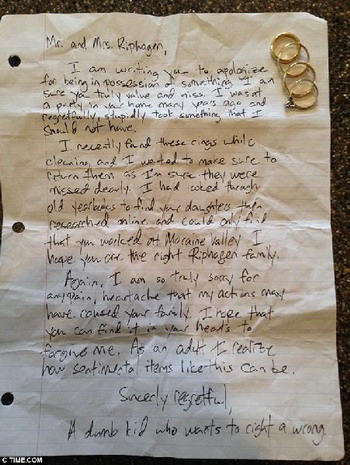 Mr. and Mrs. Riphagen,
I am writing you to apologize
for being in possession of something I am
sure you truly value and miss. I was at
a party in your home many years ago and
regretfully, stupidly took something that I
should not have.
I recently found these rings while
cleaning and I wanted to make sure to
return them as I'm sure they were
missed dearly. I had looked through
old yearbooks to find your daughters then
researched online and could only find
that you worked at Moraine Valley I
hope you are the right Riphagen family.
Again, I am so truly sorry for
any pain, heartache that my actions may
have caused your family. I hope that
you can find it in your hearts to
forgive me. As an adult I realize
how sentimental items like this can be.
Sincerly regretful,
A dumb kid who wants to right a wrong
C TIME.COM